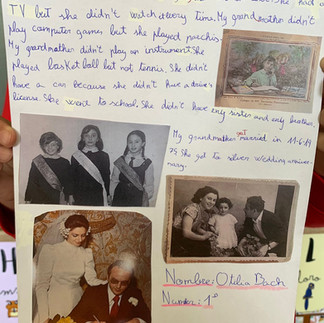 TV but she didn't watch every time. My grandmother didn't
play computer game but she played parchis.
My grandmother didn't play an instrument. She
played basketball but not tennis. She didn't
have a car because she didn't have a driver
license. She went to school. She didn't have any sister and any brother.
My grandmother got married in 11-6-19
75. She got to silver wedding anniver-
sary.
Nombre: Otilia Bach
Numero: 1º